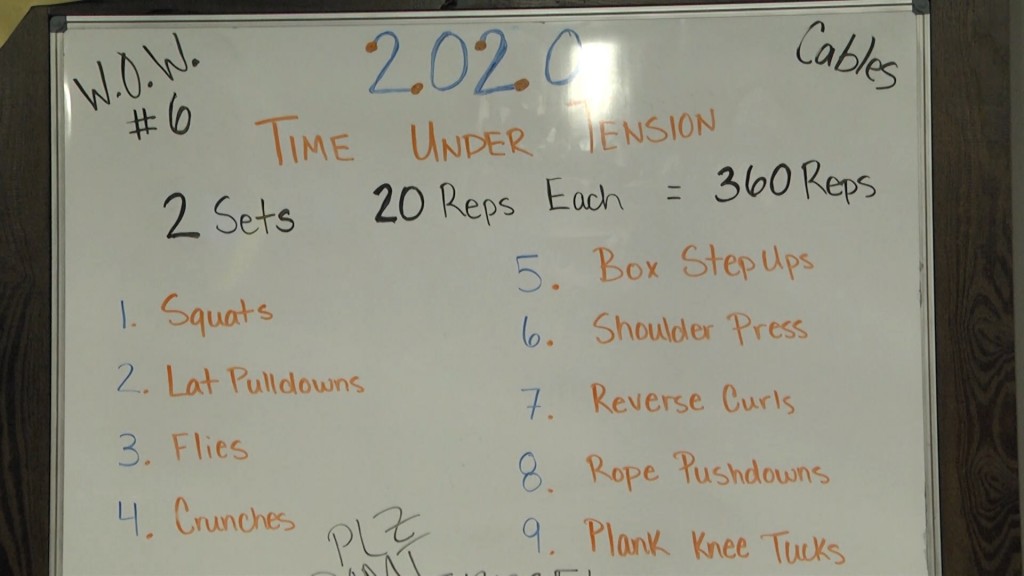 W.O.W. #6
2.02.0
Cables
TIME UNDER TENSION
2 Sets 20 Reps Each = 360 Reps
1. Squats
2. Lat Pulldowns
3. Flies
4. Crunches
5. Box Step Ups
6. Shoulder Press
7. Reverse Curls
8. Rope Pushdowns
9. Plank Knee Tucks
PLZ